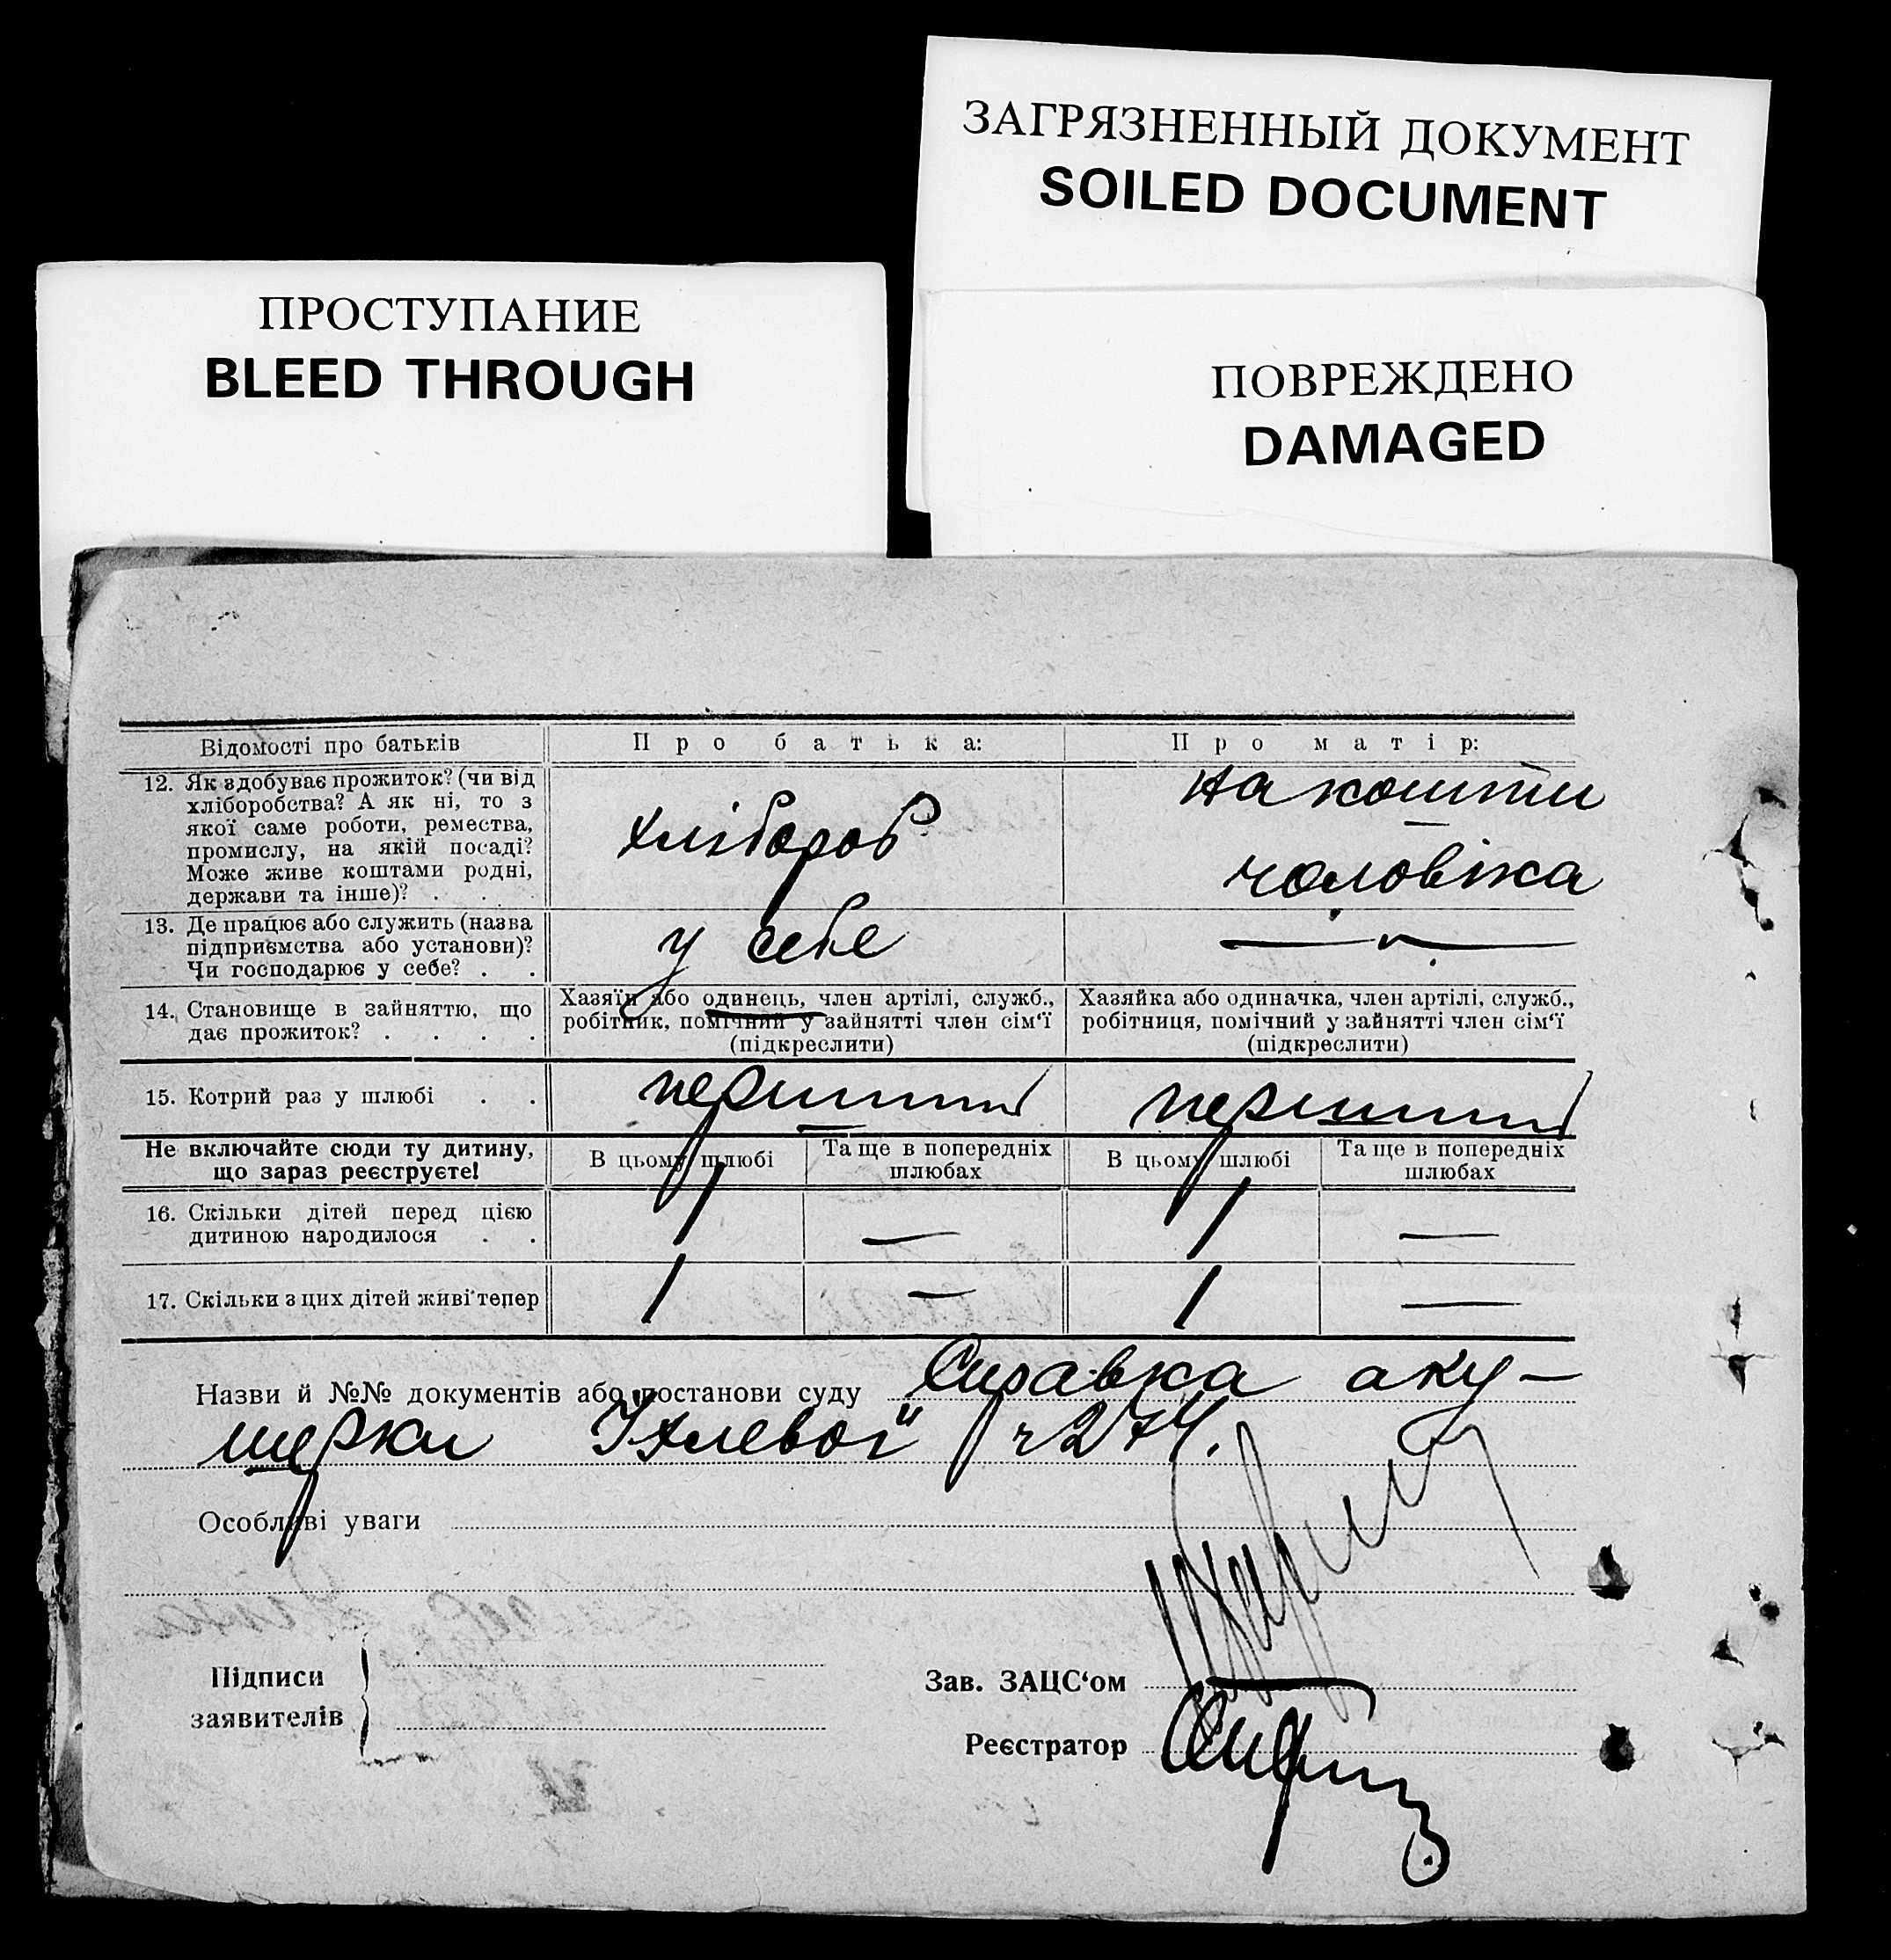 ЗАГРЯЗНЕННЫЙ ДОКУМЕНТ
SOILED DOCUMENT
ПРОСТУПАНИЕ
BLEED THROUGH
ПОВРЕЖДЕНО
DAMAGED
Відомості про батьків
Про батька:
Про матір:
12. Як здобуває прожиток? (чи від
хліборобства? А як ні, то з
якої саме роботи, ремества,
промислу, на якій посаді?
Може живе коштами родні,
держави та інше)? . . .
хлібороб
на кошти
чоловіка
13. Де працює або служить (назва
підприємства або установи)?
Чи господарює у себе? . .
у себе
—
14. Становище в зайняттю, що
дає прожиток? . . . .
Хазяїн або одинець, член артілі, служб.,
робітник, помічний у зайнятті член сім'ї
(підкреслити)
Хазяйка або одиначка, член артілі, служб.,
робітниця, помічний у зайнятті член сім'ї
(підкреслити)
15. Котрий раз у шлюбі . .
перший
перший
Не включайте сюди ту дитину,
що зараз реєструєте!
В цьому шлюбі
Та ще в попередніх
шлюбах
В цьому шлюбі
Та ще в попередніх
шлюбах
16. Скільки дітей перед цією
дитиною народилося . .
1
—
1
—
17. Скільки з цих дітей живі тепер
1
—
1
—
Назви й №№ документів або постанови суду Справка аку-
шерки ч 274.
Особливі уваги
Підписи
заявителів
Зав. ЗАЦС'ом
Реєстратор